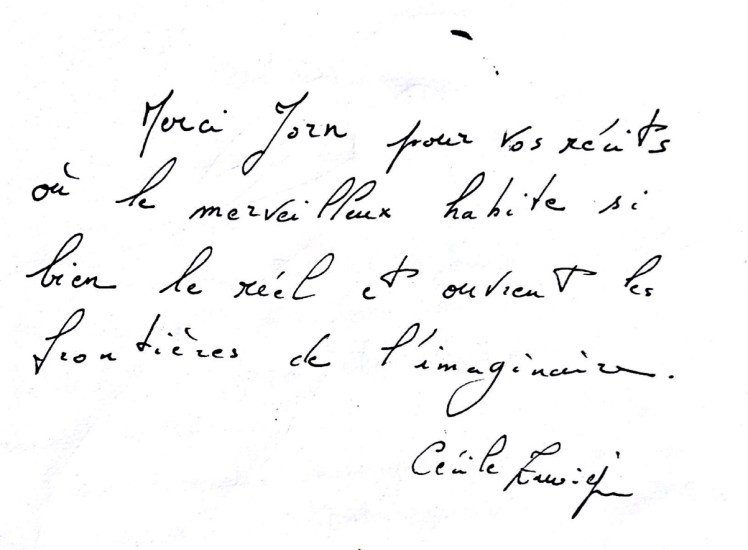 Merci Jorn pour vos récits
où le merveilleux habite si
bien le réel et ouvrent les
frontières de l'imaginaire.
Cécile